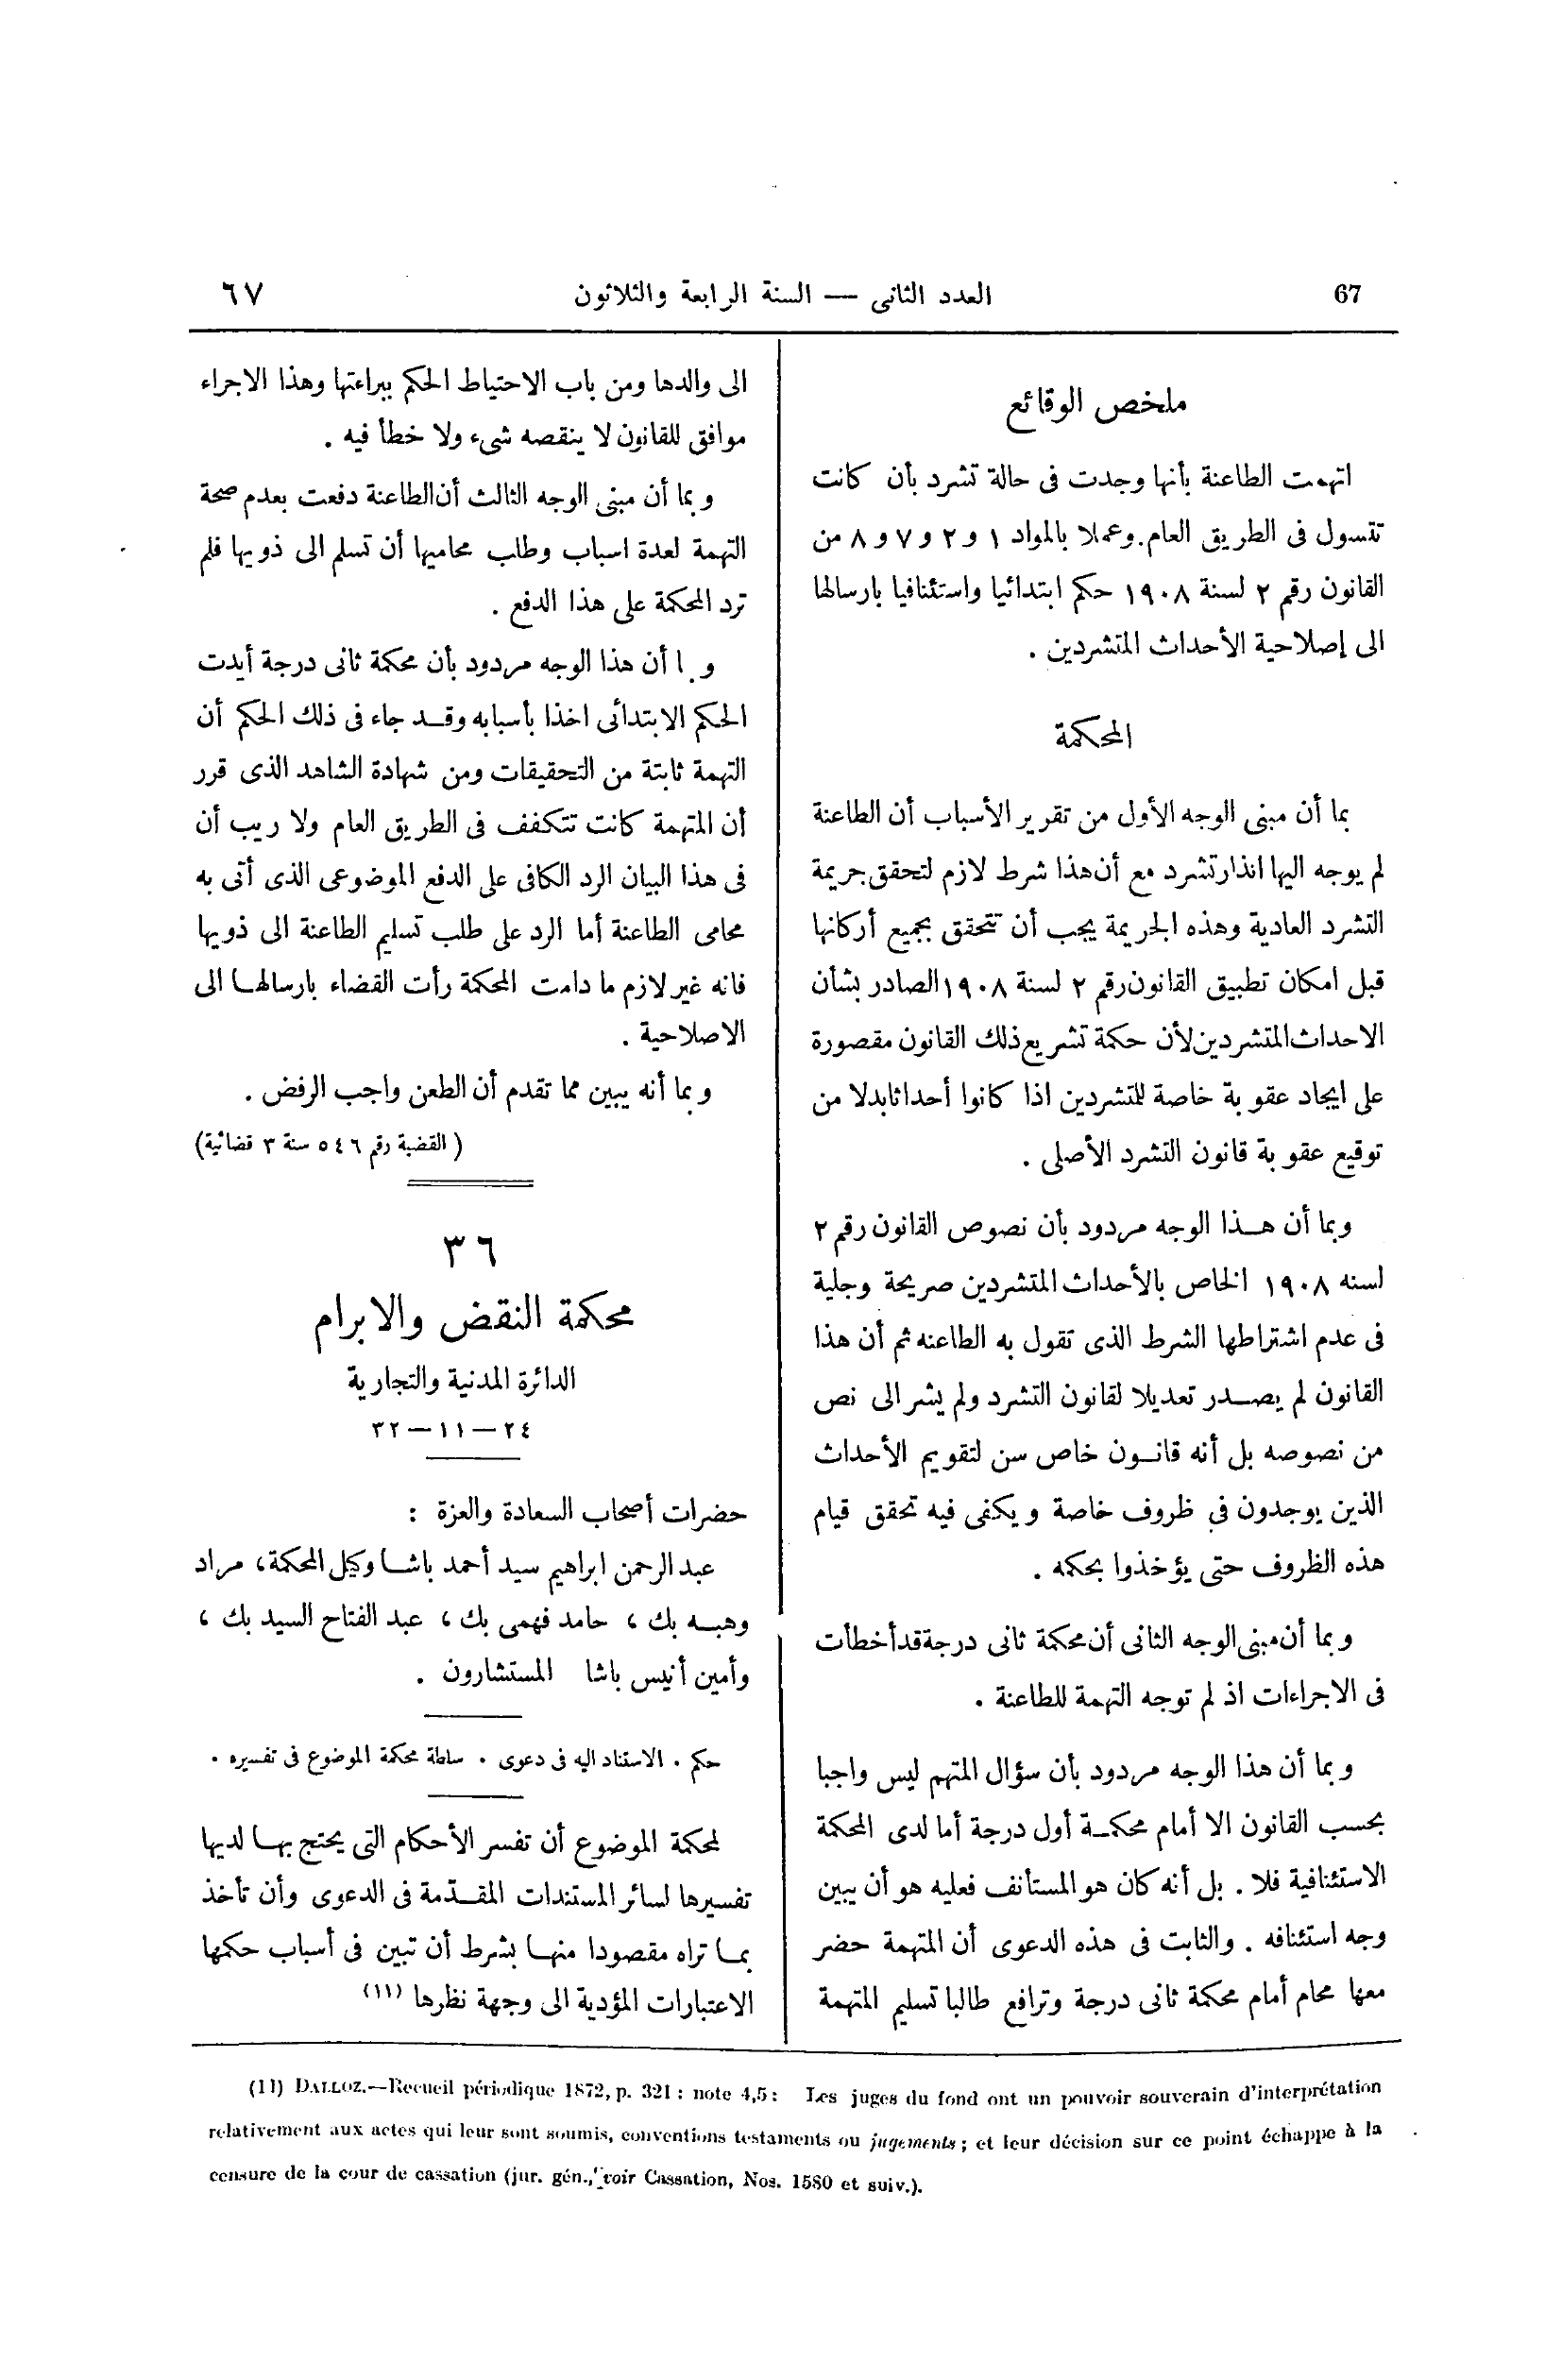 67
العدد الثانى — السنة الرابعة والثلاثون
٦٧
ملخص الوقائع
اتهمت الطاعنة بأنها وجدت فى حالة تشرد بأن كانت
تتسول فى الطريق العام. وعملا بالمواد ١ و ٢ و ٧ و ٨ من
القانون رقم ٢ لسنة ١٩٠٨ حكم ابتدائيا واستئنافيا بارسالها
الى إصلاحية الأحداث المتشردين .
المحكمة
بما أن مبنى الوجه الأول من تقرير الأسباب أن الطاعنة
لم يوجه اليها انذار تشرد مع أن هذا شرط لازم لتحقق جريمة
التشرد العادية وهذه الجريمة يجب أن تتحقق بجميع أركانها
قبل امكان تطبيق القانون رقم ٢ لسنة ١٩٠٨ الصادر بشأن
الاحداث المتشردين لأن حكمة تشريع ذلك القانون مقصورة
على ايجاد عقوبة خاصة للمتشردين اذا كانوا أحداثا بدلا من
توقيع عقوبة قانون التشرد الأصلى .
وبما أن هـذا الوجه مردود بأن نصوص القانون رقم ٢
لسنه ١٩٠٨ الخاص بالأحداث المتشردين صريحة وجلية
فى عدم اشتراطها الشرط الذى تقول به الطاعنه ثم أن هذا
القانون لم يصـدر تعديلا لقانون التشرد ولم يشر الى نص
من نصوصه بل أنه قانـون خاص سن لتقويم الأحداث
الذين يوجدون في ظروف خاصة ويكفى فيه تحقق قيام
هذه الظروف حتى يؤخذوا بحكمه .
وبما أن مبنى الوجه الثانى أن محكمة ثانى درجة قد أخطأت
فى الاجراءات اذ لم توجه التهمة للطاعنة .
وبما أن هذا الوجه مردود بأن سؤال المتهم ليس واجبا
بحسب القانون الا أمام محكمـة أول درجة أما لدى المحكمة
الاستئنافية فلا . بل أنه كان هو المستأنف فعليه هو أن يبين
وجه استئنافه . والثابت فى هذه الدعوى أن المتهمة حضر
معها محام أمام محكمة ثانى درجة وترافع طالبا تسليم المتهمة
الى والدها ومن باب الاحتياط الحكم ببراءتها وهذا الاجراء
موافق للقانون لا ينقصه شىء ولا خطأ فيه .
وبما أن مبنى الوجه الثالث أن الطاعنة دفعت بعدم صحة
التهمة لعدة اسباب وطلب محاميها أن تسلم الى ذويها فلم
ترد المحكمة على هذا الدفع .
وبما أن هذا الوجه مردود بأن محكمة ثانى درجة أيدت
الحكم الابتدائى اخذا بأسبابه وقـد جاء فى ذلك الحكم أن
التهمة ثابتة من التحقيقات ومن شهادة الشاهد الذى قرر
أن المتهمة كانت تتكفف فى الطريق العام ولا ريب أن
فى هذا البيان الرد الكافى على الدفع الموضوعى الذى أتى به
محامى الطاعنة أما الرد على طلب تسليم الطاعنة الى ذويها
فانه غير لازم ما دامت المحكمة رأت القضاء بارسالهـا الى
الاصلاحية .
وبما أنه يبين مما تقدم أن الطعن واجب الرفض .
( القضية رقم ٥٤٦ سنة ٣ قضائية)
٣٦
محكمة النقض والابرام
الدائرة المدنية والتجارية
٢٤ — ١١ — ٣٢
حضرات أصحاب السعادة والعزة :
عبد الرحمن ابراهيم سيد أحمد باشـا وكيل المحكمة، مراد
وهبـه بك ، حامد فهمى بك ، عبد الفتاح السيد بك ،
وأمين أنيس باشا المستشارون .
حكم . الاستناد اليه فى دعوى . سلطة محكمة الموضوع فى تفسيره .
لمحكمة الموضوع أن تفسر الأحكام التى يحتج بهـا لديها
تفسيرها لسائر المستندات المقـدّمة فى الدعوى وأن تأخذ
بمـا تراه مقصودا منهـا بشرط أن تبين فى أسباب حكمها
الاعتبارات المؤدية الى وجهة نظرها (١١)
(11) DALLOZ.—Recueil périodique 1872, p. 321 : note 4,5 : Les juges du fond ont un pouvoir souverain d'interprétation
relativement aux actes qui leur sont soumis, conventions testaments ou jugements ; et leur décision sur ce point échappe à la
censure de la cour de cassation (jur. gén., voir Cassation, Nos. 1580 et suiv.).